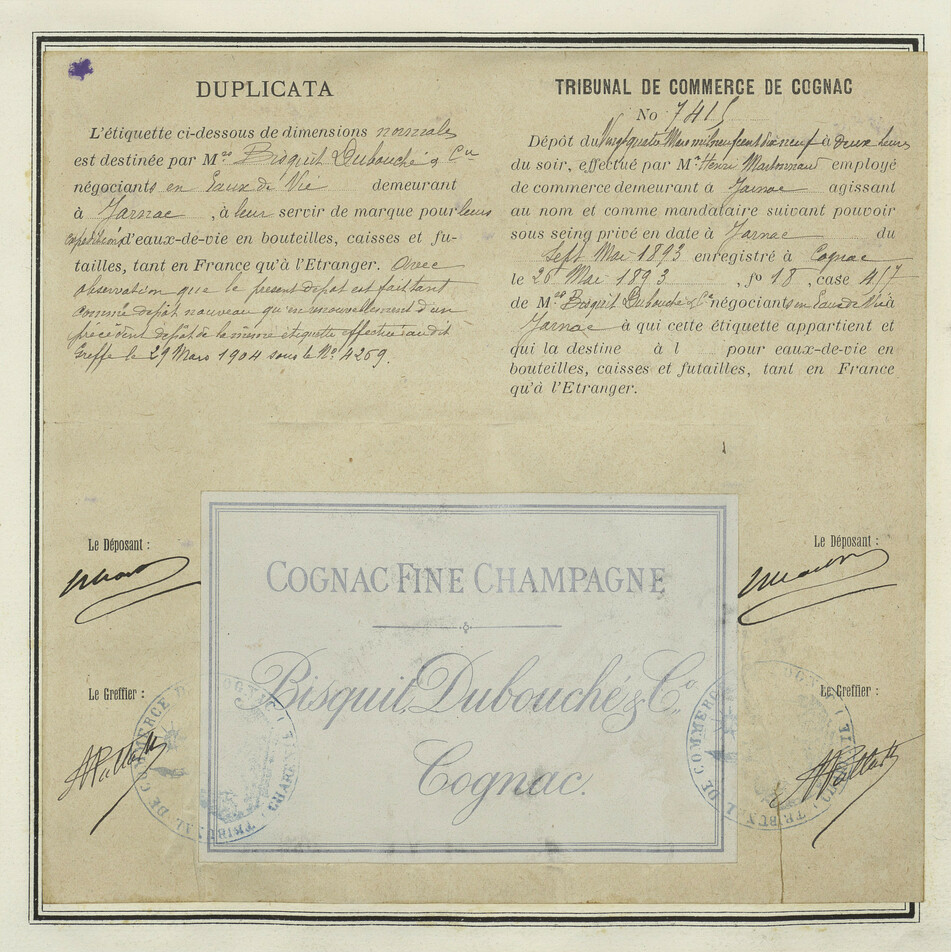 DUPLICATA
L'étiquette ci-dessous de dimensions normales
est destinée par Mrs Bisquit Dubouché & Cie
négociants en Eaux de Vie demeurant
à Jarnac, à leur servir de marque pour leurs
expéditions d'eaux-de-vie en bouteilles, caisses et fu-
tailles, tant en France qu'à l'Etranger. Avec
observation que le présent dépôt est fait tant
comme dépôt nouveau qu'en renouvellement d'un
précédent dépôt de la même étiquette effectué audit
Greffe le 29 Mars 1904 sous le No 4269.
TRIBUNAL DE COMMERCE DE COGNAC
No 7415
Dépôt du Mars mil neuf cent dix neuf à deux heures
du soir, effectué par Mr Henri employé
de commerce demeurant à Jarnac agissant
au nom et comme mandataire suivant pouvoir
sous seing privé en date à Jarnac du
Sept Mai 1893 enregistré à Cognac
le 20 Mai 1893, fo 18, case 417
de Mrs Bisquit Dubouché & Cie négociants en Eaux de Vie à
Jarnac à qui cette étiquette appartient et
qui la destine à l pour eaux-de-vie en
bouteilles, caisses et futailles, tant en France
qu'à l'Etranger.
Le Déposant :
Le Déposant :
COGNAC FINE CHAMPAGNE
Bisquit, Dubouché & Co.
Cognac.
Le Greffier :
Le Greffier :
TRIBUNAL DE COMMERCE DE COGNAC
TRIBUNAL DE COMMERCE DE COGNAC